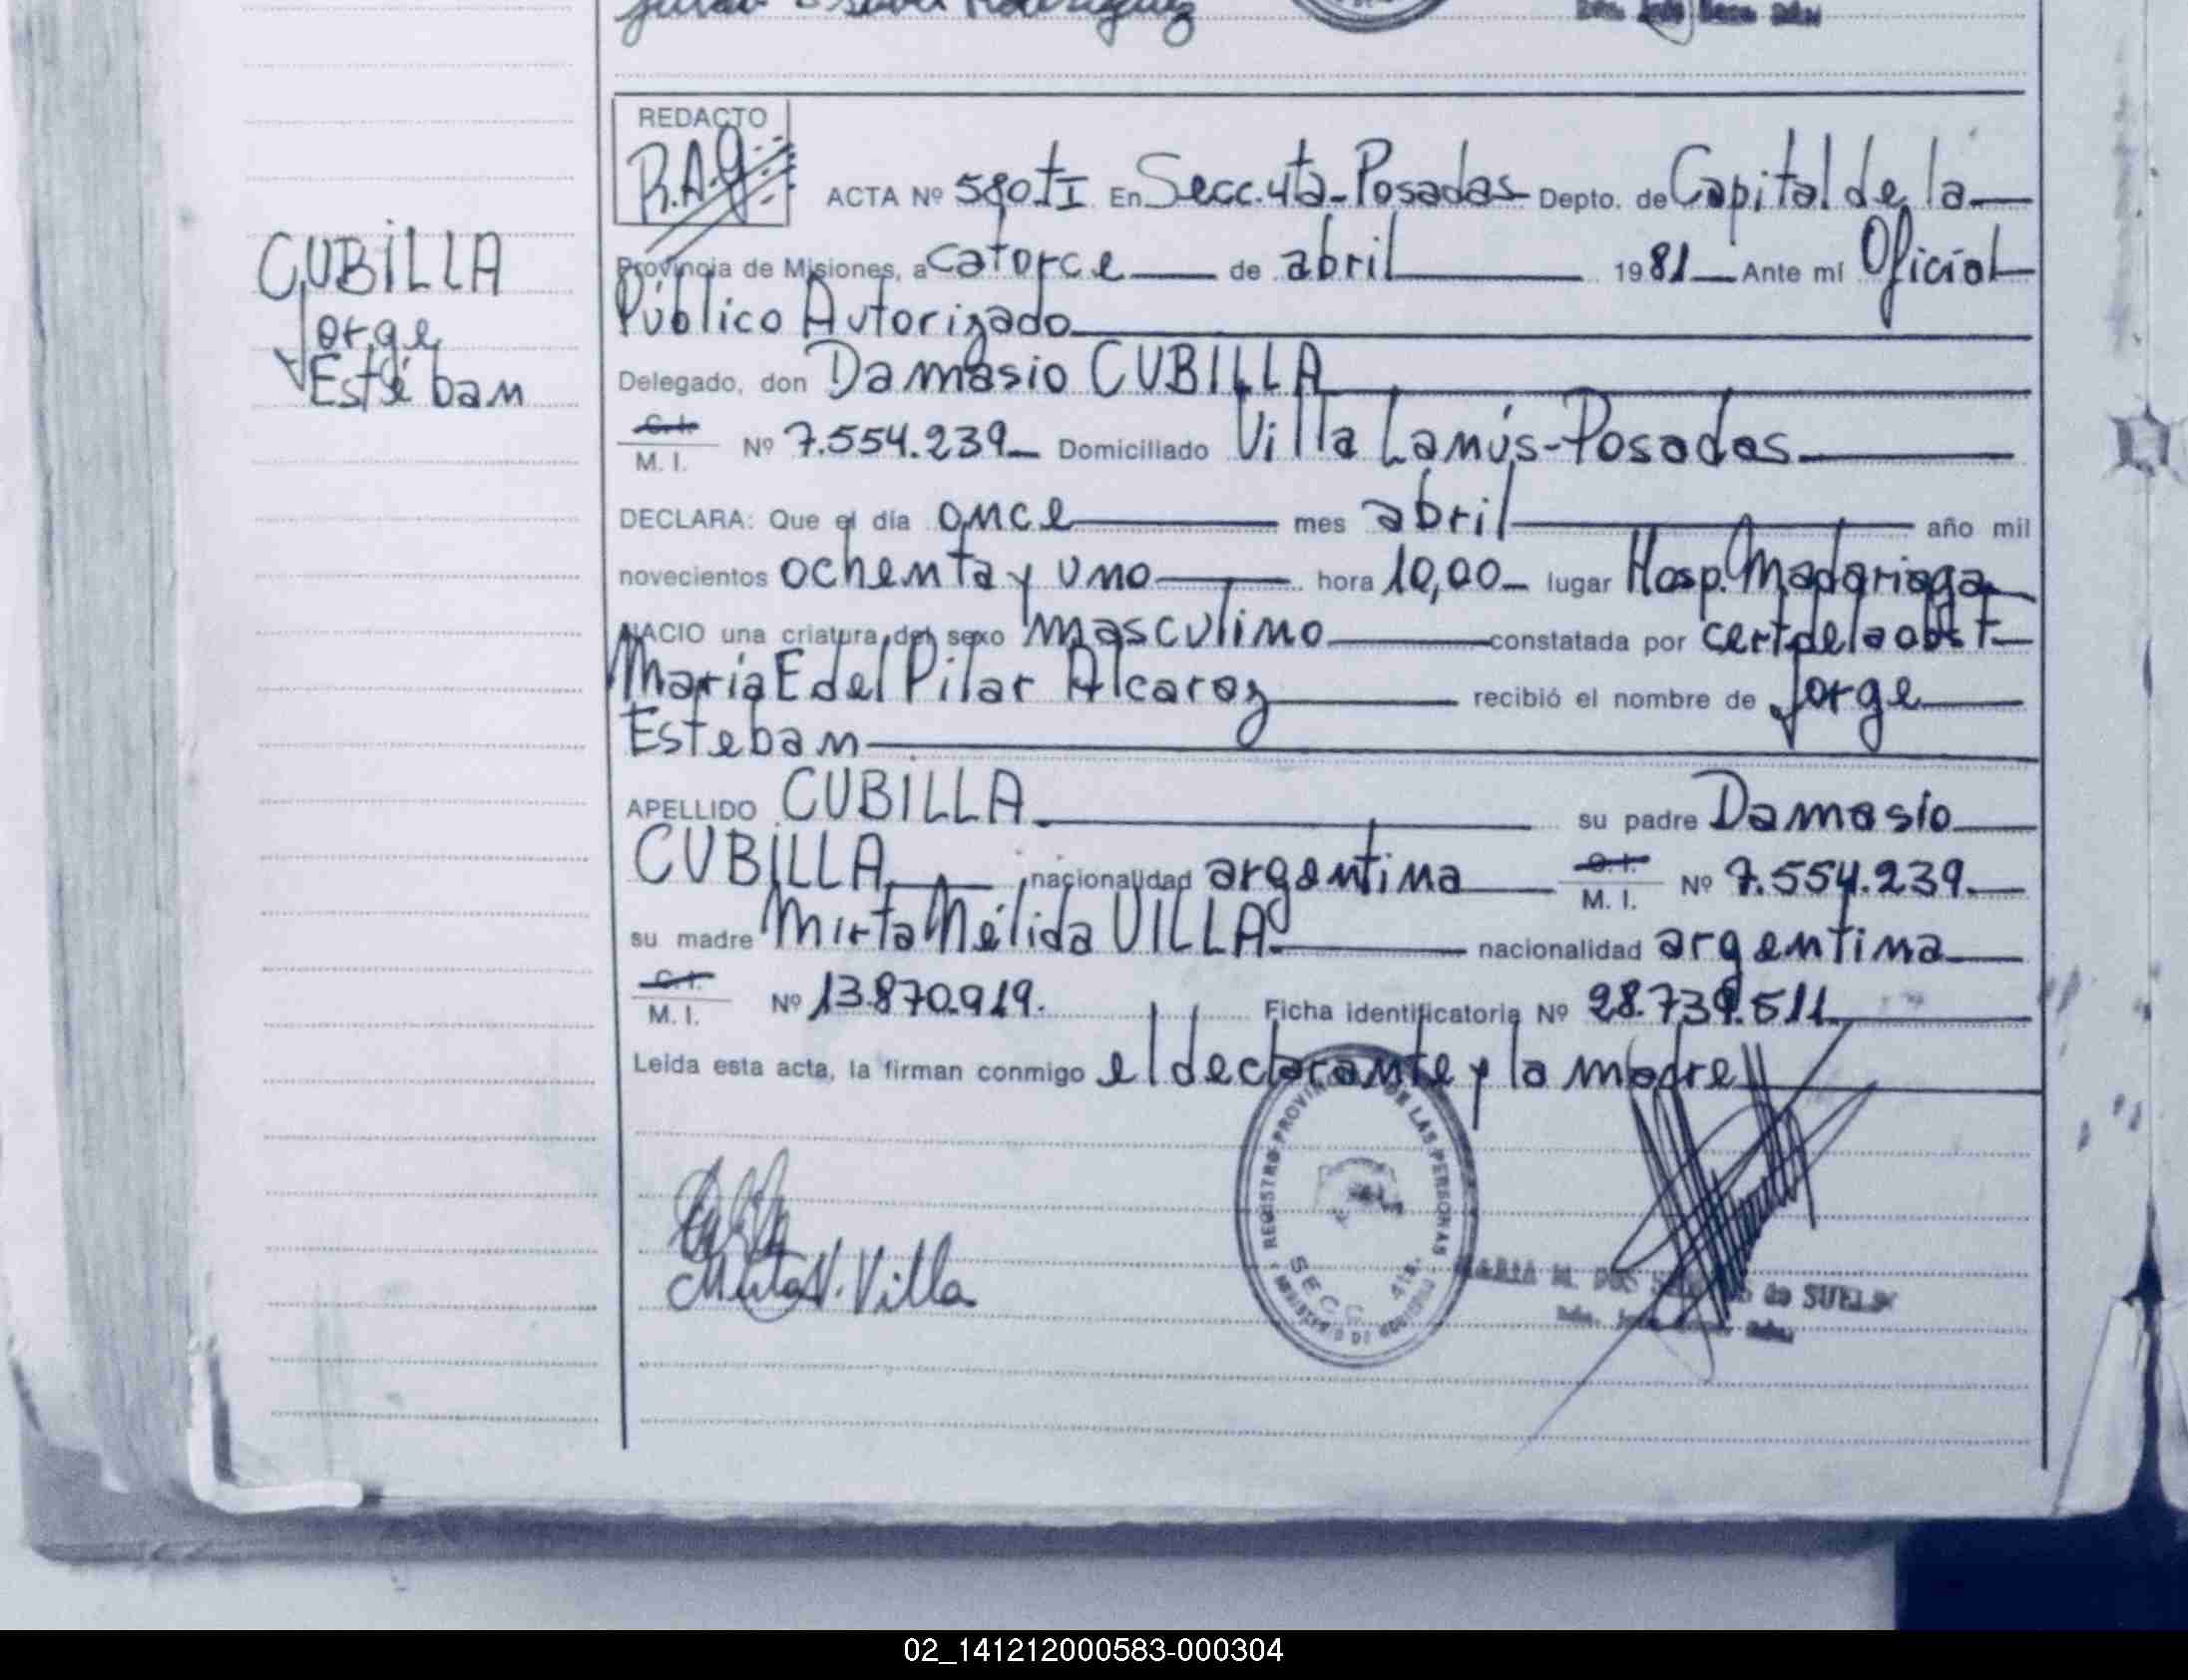 REDACTO
R.A.G.
ACTA Nº 580 tI En Secc. 4ta - Posadas Depto. de Capital de la
Provincia de Misiones, a catorce de abril 1981 Ante mí Oficial
Público Autorizado
CUBILLA
Jorge
Esteban
Delegado, don Damasio CUBILLA
C. I.
M. I. Nº 7.554.239 Domiciliado Villa Lanús - Posadas
DECLARA: Que el día once mes abril año mil
novecientos ochenta y uno hora 10,00 lugar Hosp. Madariaga
NACIO una criatura del sexo masculino constatada por cert de la obst
María E del Pilar Alcaraz recibió el nombre de Jorge
Esteban
APELLIDO CUBILLA su padre Damasio
CUBILLA nacionalidad argentina C. I. M. I. Nº 7.554.239.
su madre Mirta Nélida VILLA nacionalidad argentina
C. I.
M. I. Nº 13.870.919. Ficha identificatoria Nº 28.739.511
Leída esta acta, la firman conmigo el declarante y la madre
Mirta N. Villa
REGISTRO PROVINCIAL DE LAS PERSONAS
SECC. 4ta.
MINISTERIO DE GOBIERNO
de SUELX
02_141212000583-000304